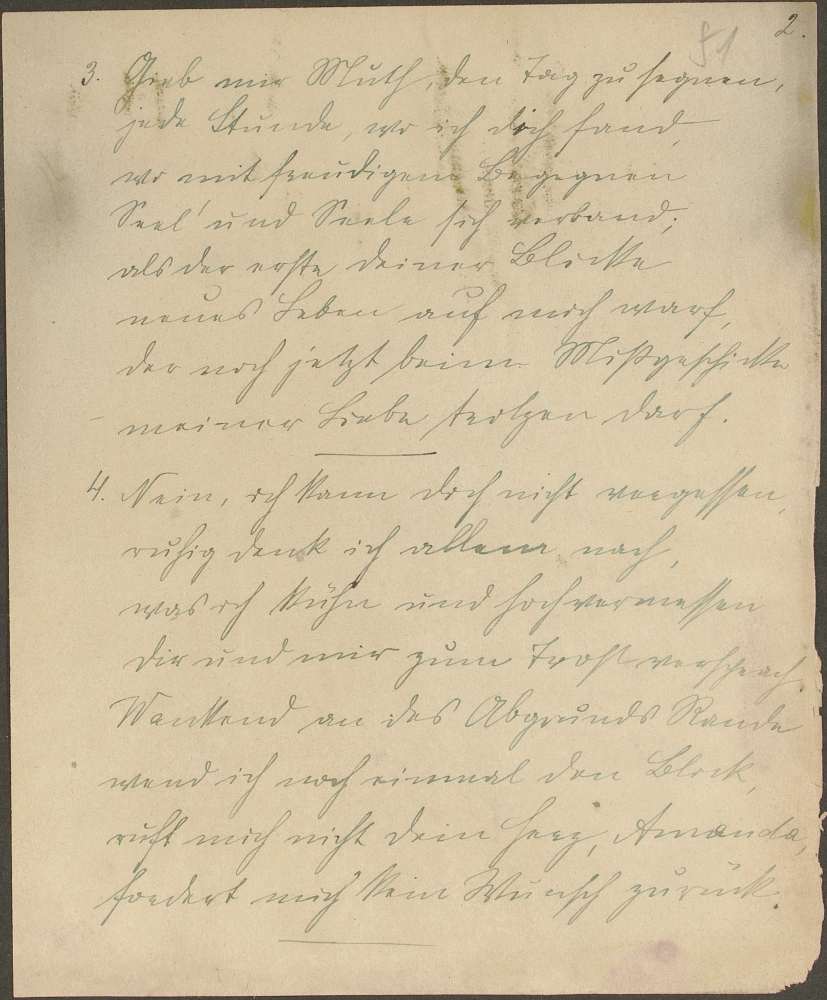 2.
51
3. Gieb mir Muth, den Tag zu segnen,
jede Stunde, wo ich dich fand,
wo mit freudigem Begegnen
Seel' und Seele sich verband;
als der erste deiner Blicke
neues Leben auf mich warf,
der noch jetzt beim Mißgeschicke
meiner Liebe trotzen darf.
4. Nein, ich kann dich nicht vergessen,
ruhig denk ich allem nach,
was ich kühn und hochvermessen
dir und mir zum Trost versprach.
Wankend an des Abgrunds Rande
wend ich noch einmal den Blick,
ruft mich nicht dein Herz, Amanda,
fordert mich kein Wunsch zurück.